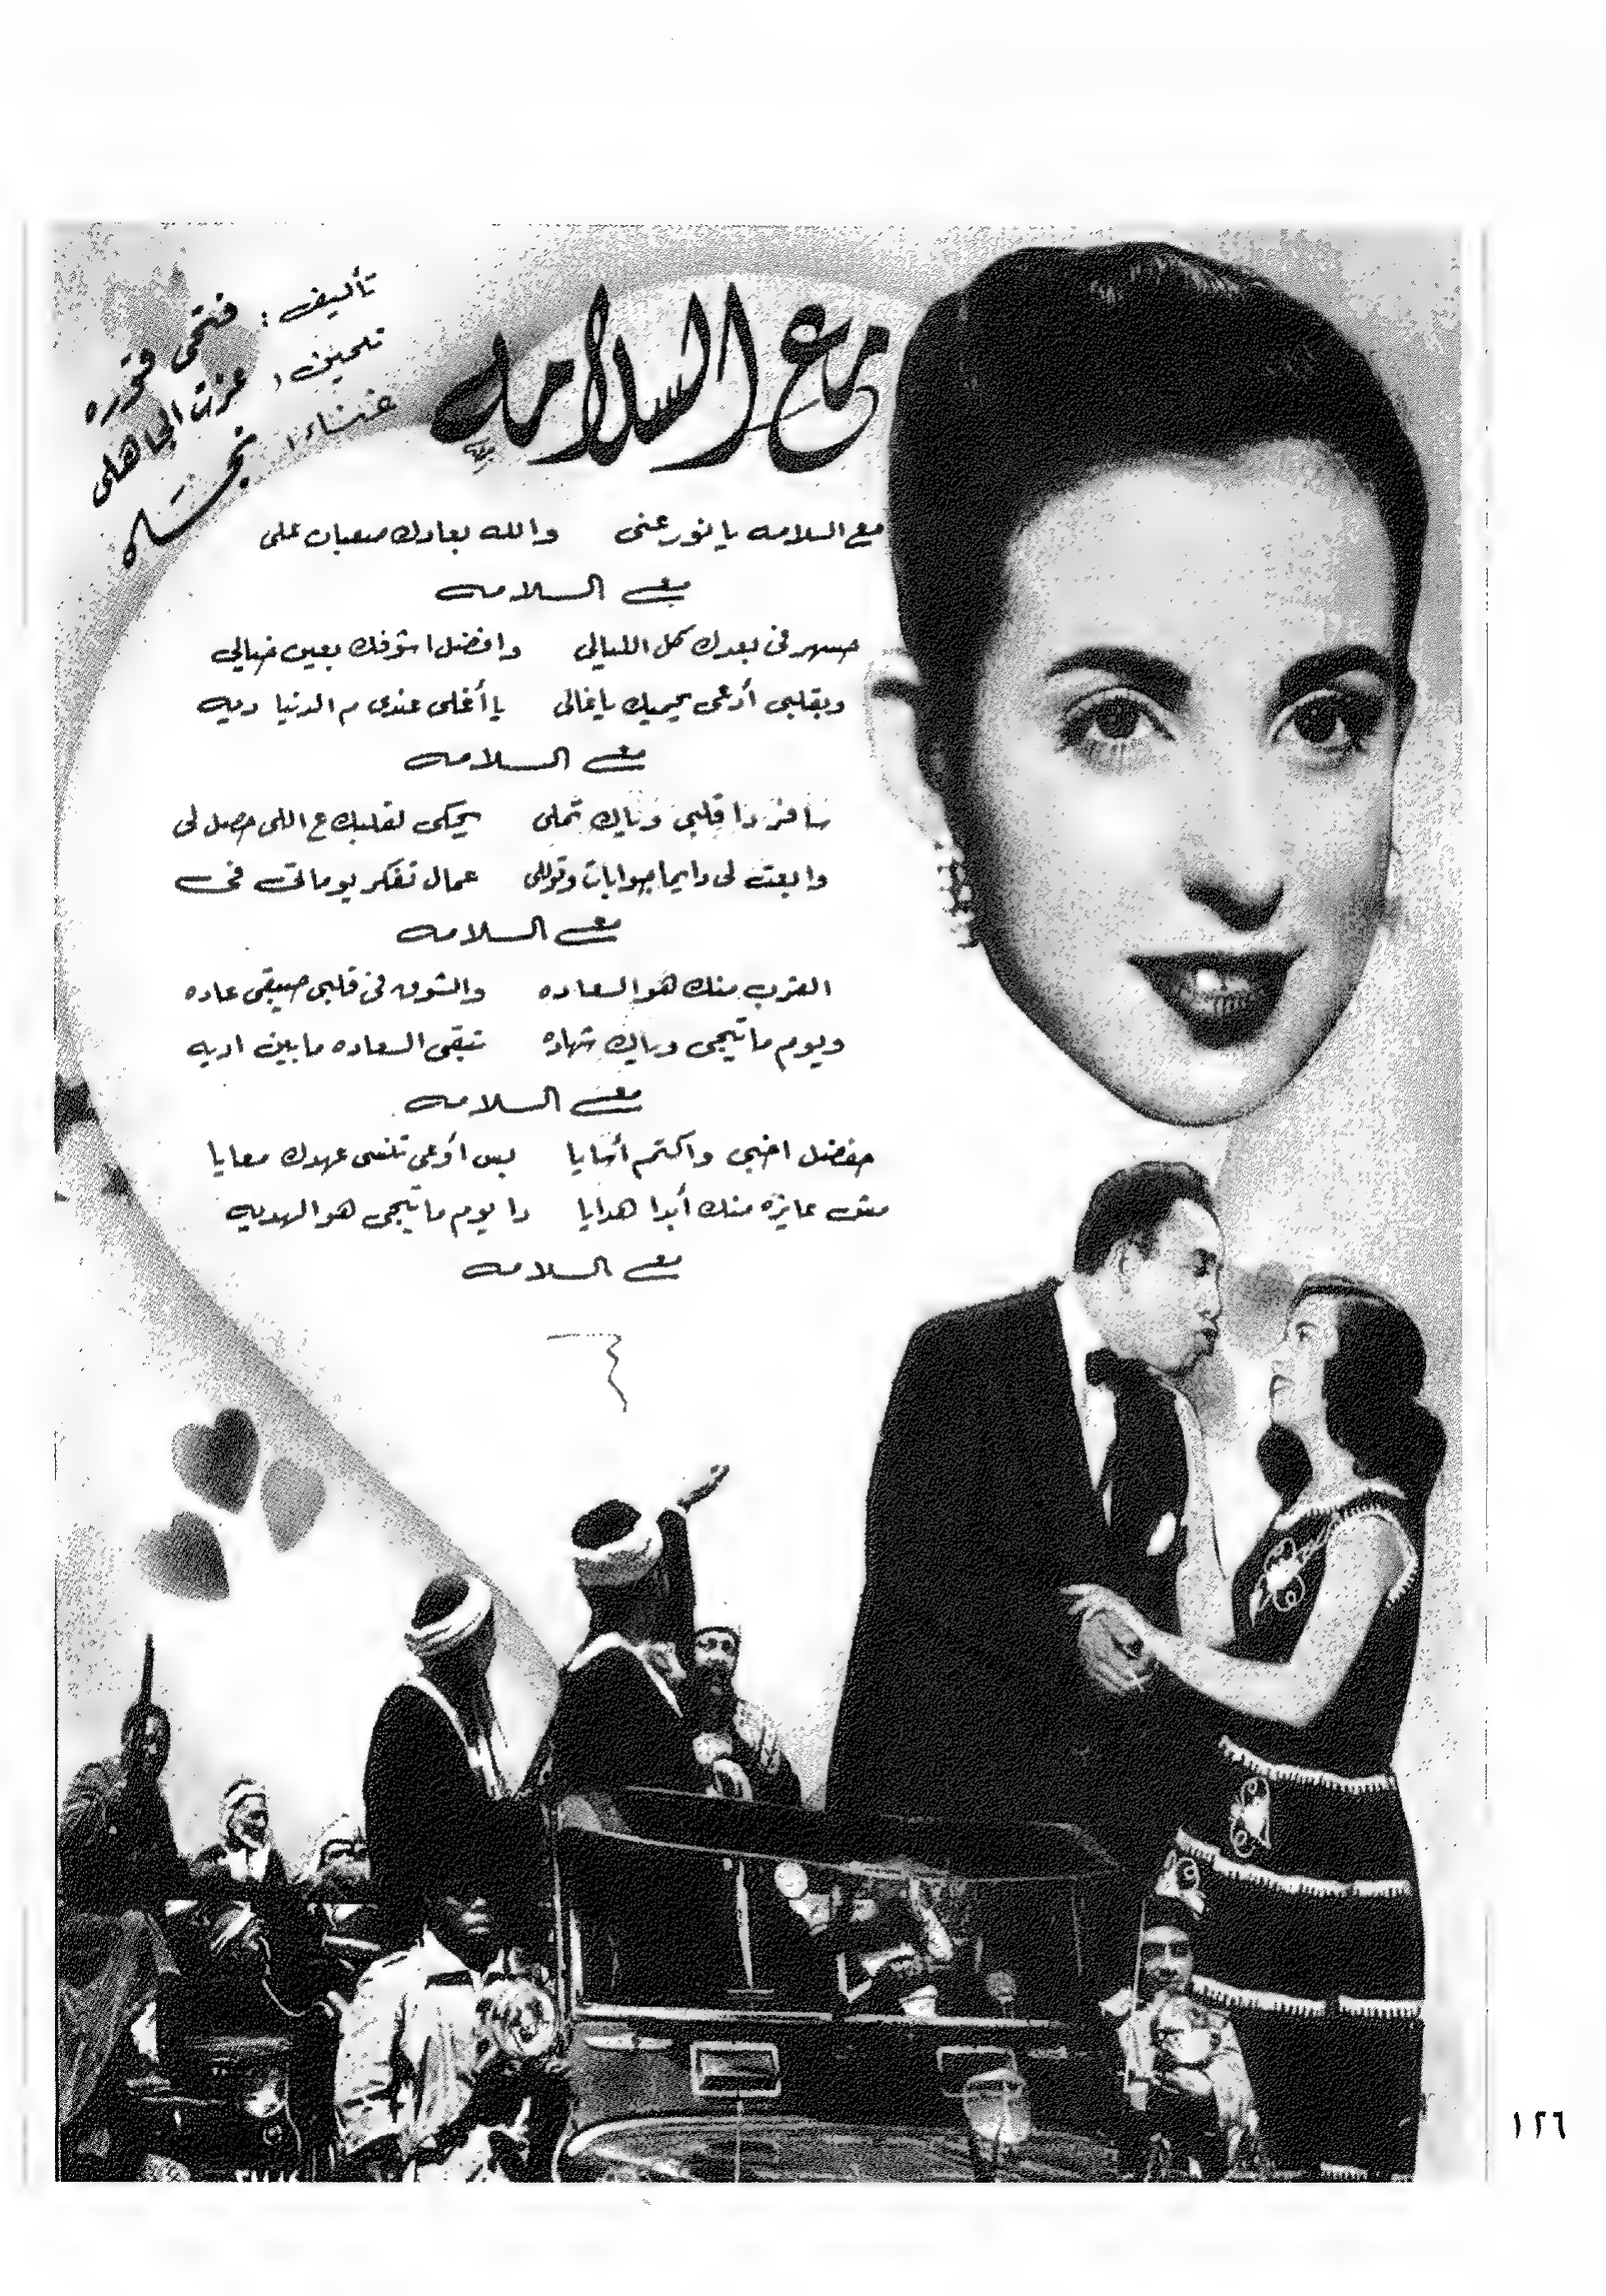 مع السلامه
تأليف: فتحى قوره
تلحين: عزت الجاهلى
غناء: نجاة
مع السلامه يا نور عنى والله بعادك صعبان على
مع السلامه
حسهر فى بعدك كل الليالى وافضل اشوفك بعين خيالى
وبقلبى أدعى يحميك ياغالى يا أغلى عندى م الدنيا ديه
مع السلامه
سافر دا قلبى وياك تملى يحكى لقلبك ع اللى حصل لى
وابعت لى دايما جوابات وقوللى عمال تفكر يوماتى فى
مع السلامه
القرب منك هو السعاده والشوق فى قلبى حيبقى عاده
ويوم ماتيجى وياك شهاده تبقى السعاده مابين اديه
مع السلامه
حفضل اخبى واكتم أسايا بس أوعى تنسى عهدك معايا
مش عايزه منك أبدا هدايا دا يوم ماتيجى هو الهديه
مع السلامه
١٢٦